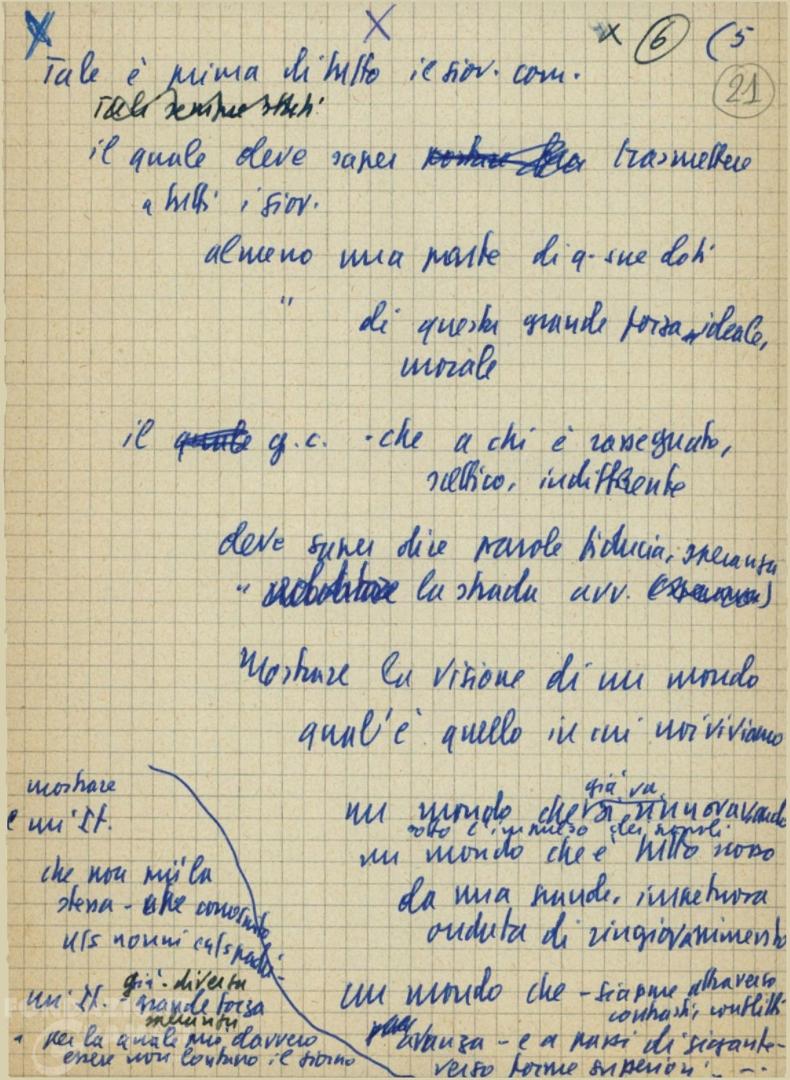 X X x 6 (5
21
Tale è prima di tutto il giov. com.
Tali
il quale deve saper trasmettere
a tutti i giov.
almeno una parte di q. sue doti
"
di questa grande forza, ideale,
morale
il quale g. c. - che a chi è rassegnato,
scettico, indifferente
deve saper dire parole fiducia, speranza
" la strada avv.
Mostrare la visione di un mondo
qual'è quello in cui noi viviamo
già va
un mondo che si rinnovando
sotto l'impulso dei popoli
un mondo che è tutto scosso
da una grande, impetuosa
ondata di ringiovanimento
un mondo che - sia pure attraverso
contrasti, conflitti
avanza - e a passi di gigante -
verso forme superiori - - -
mostrare
e un'It.
che non più la
stessa - che conosciuto
i ns nonni e i ns padri -
già - diversa
un'It. - grande forza
speranza
" per la quale può davvero
essere non lontano il giorno